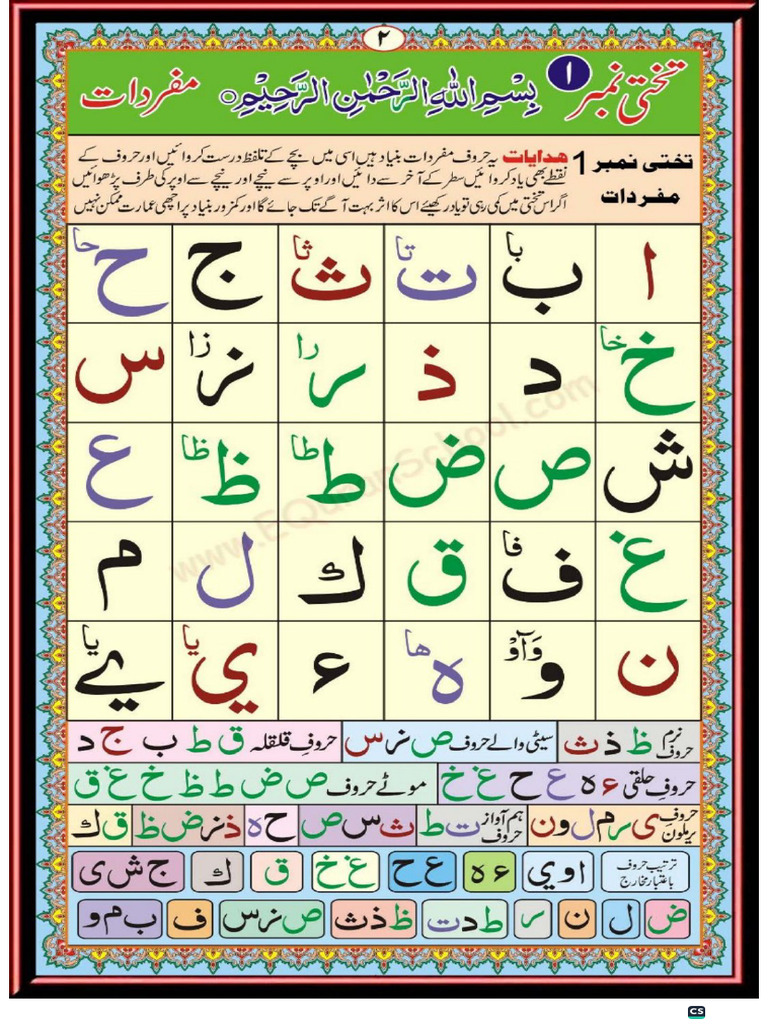 ۲
تختی نمبر ۱ بِسْمِ اللهِ الرَّحْمٰنِ الرَّحِيْمِ مفردات
تختی نمبر 1 مفردات
ھدایات یہ حروف مفردات بنیاد ہیں اسی میں بچے کے تلفظ درست کروائیں اور حروف کے
نقطے بھی یاد کروائیں سطر کے آخر سے دائیں اور اوپر سے نیچے اور نیچے سے اوپر کی طرف پڑھوائیں
اگر اس تختی میں کمی رہی تو یاد رکھیئے اس کا اثر بہت آگے تک جائے گا اور کمزور بنیاد پر اچھی عمارت ممکن نہیں
ا ب با ت تا ث ثا ج ح حا
خ خا د ذ ر را ز زا س
ش ص ض ط طا ظ ظا ع
غ ف فا ق ك ل م
ن و وَاوْ ہ ھا ء ي يا ے يا
نرم حروف ظ ذ ث سیٹی والے حروف ص ز س حروف قلقلہ ق ط ب ج د
حروف حلقی ء ہ ع ح غ خ موٹے حروف ص ض ط ظ خ غ ق
حروف یرملون ی ر م ل و ن ہم آواز حروف ت ط ث س ص ح ہ ذ ز ض ظ ق ك
ترتیب حروف باعتبار مخارج ا و ي ء ہ ع ح غ خ ق ك ج ش ی
ض ل ن ر ط د ت ظ ذ ث ص ز س ف ب م و
www.EQuranSchool.com
CS